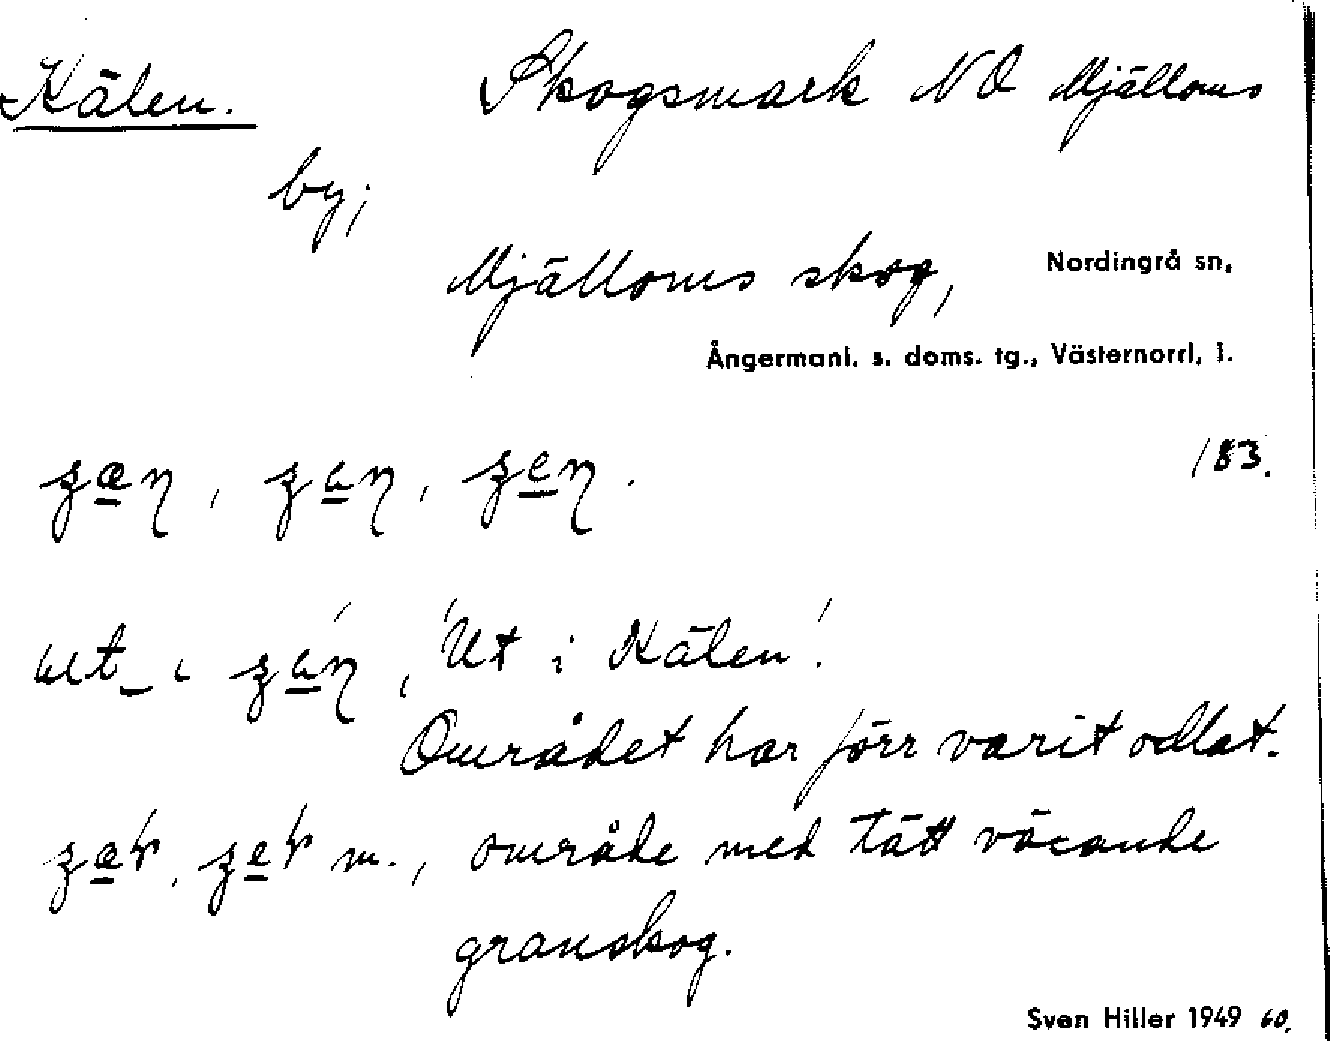 Kälen. Skogsmark NO Mjälloms
by;
Mjälloms skog, Nordingrå sn,
Ångermanl. s. doms. tg., Västernorrl, l.
183.
'Ut i Kälen'.
Området har förr varit odlat.
m., område med tätt växande
granskog.
Sven Hiller 1949 60.